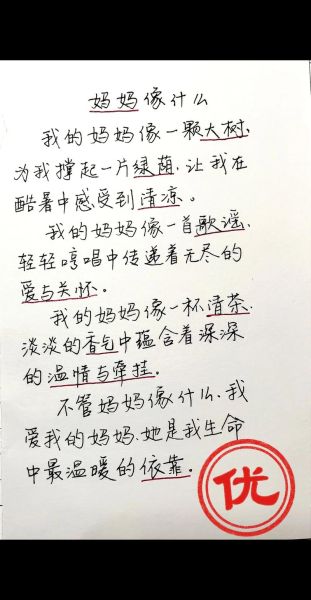 妈妈像什么
我的妈妈像一颗大树,
为我撑起一片绿荫,让我在
酷暑中感受到清凉。
我的妈妈像一首歌谣,
轻轻哼唱中传递着无尽的
爱与关怀。
我的妈妈像一杯清茶,
淡淡的香气中蕴含着深深
的温情与牵挂。
不管妈妈像什么,我
爱我的妈妈,她是我生命
中最温暖的依靠。
优